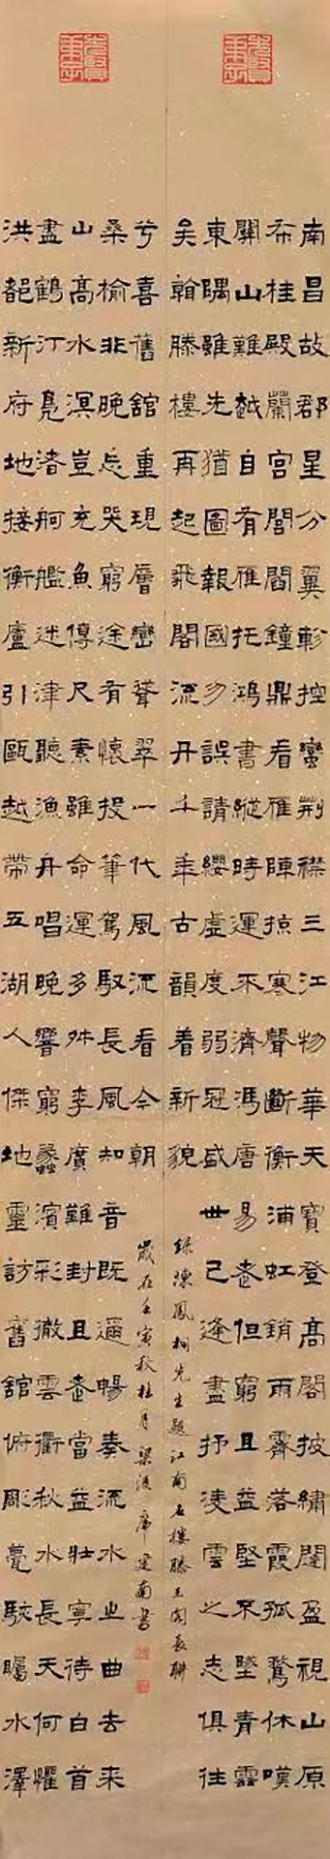 南昌故郡星分翼軫控蠻荆襟三江物華天寶登高閣披繡闥盈視山原
布桂殿蘭宮閭閻鐘鼎看雁陣掠寒聲斷衡浦虹銷雨霽落霞孤鶩休嘆
關山難越自有雁托鴻書縱時運不濟馮唐易老但窮且益堅不墜青雲
東隅雖先猶圖報國勿誤請纓虛度弱冠盛世己逢盡抒凌雲之志俱往
矣翰滕樓再起飛閣流丹千年古韻着新貌
錄陳鳳桐先生題江南名樓滕王閣長聯
洪都新府地接衡廬引甌越帶五湖人傑地靈訪舊舘俯彫甍駭矚水澤
盡鶴汀鳧渚舸艦迷津聽漁舟唱晚響窮蠡濱彩徹雲衢秋水長天何懼
山高水溟豈充魚傳尺素雖命運多舛李廣難封且老當益壯寧待白首
桑榆非晚忘哭窮途有懷投筆駕馭長風知音既遇暢奏流水之曲去來
兮喜舊舘重現層巒聳翠一代風流看今朝
歲在壬寅秋桂月梁溪席建南書